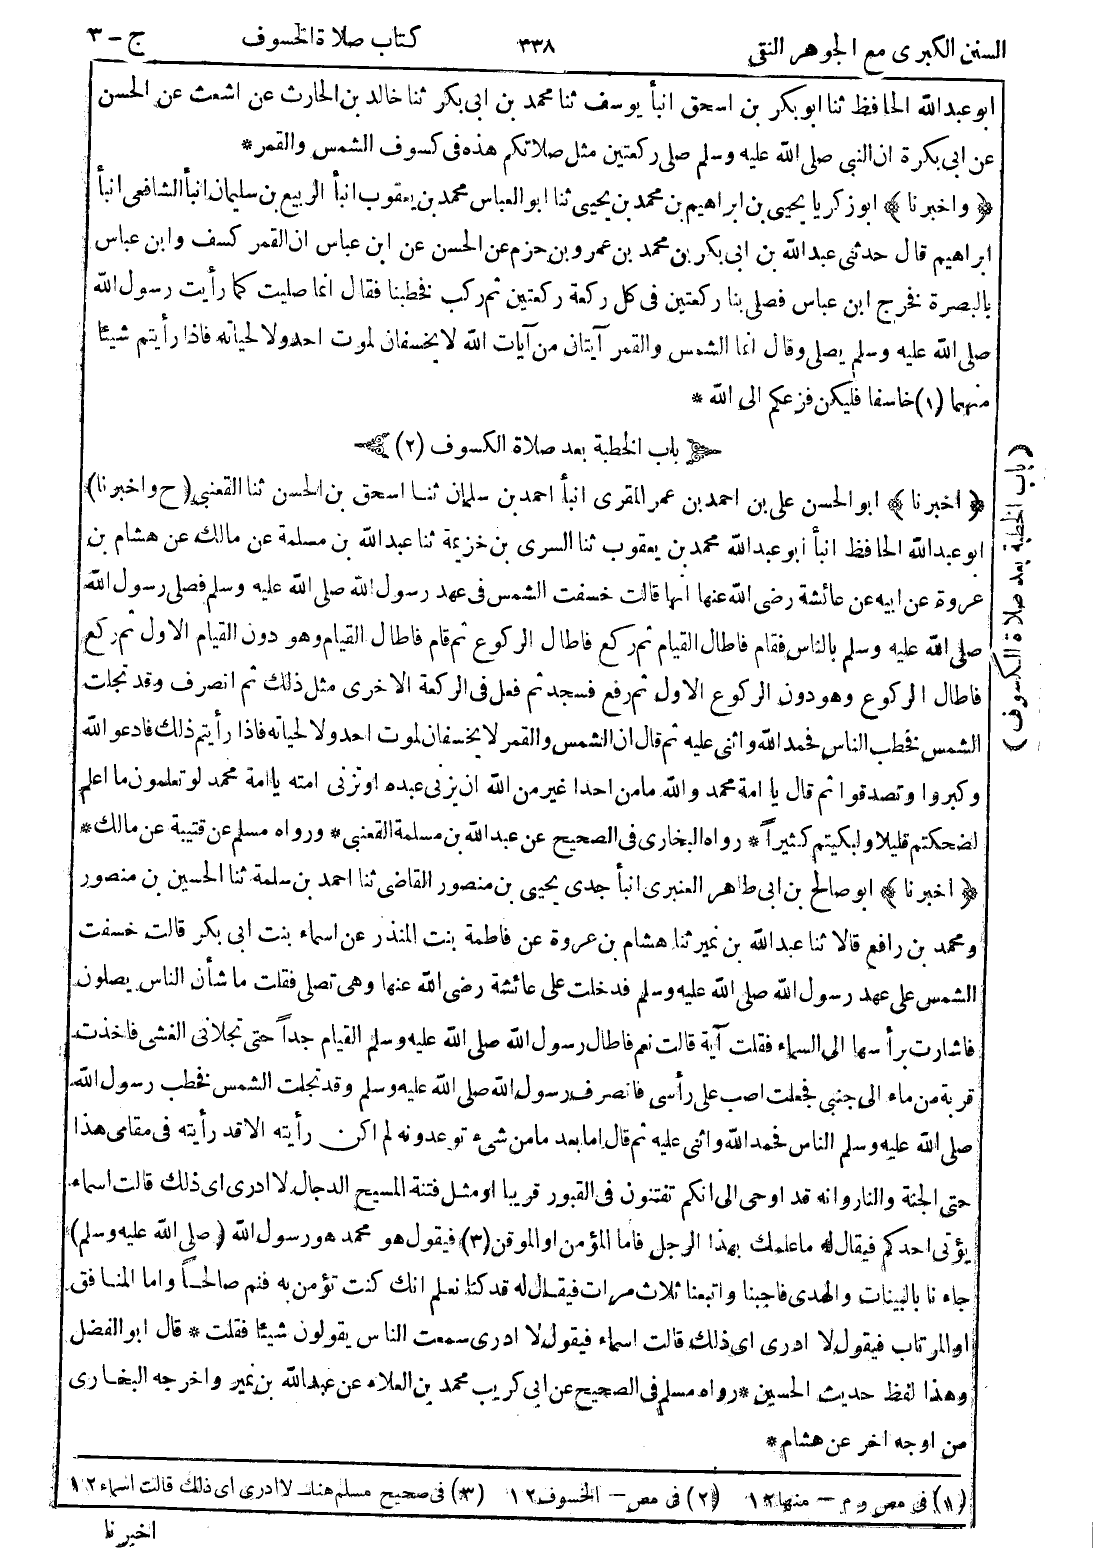 السنن الكبرى مع الجوهر النقى ٣٣٨ كتاب صلاة الخسوف ج - ٣
ابو عبد الله الحافظ ثنا ابو بكر بن اسحق انبأ يوسف ثنا محمد بن ابى بكر ثنا خالد بن الحارث عن اشعث عن الحسن
عن ابى بكرة ان النبى صلى الله عليه وسلم صلى ركعتين مثل صلاتكم هذه فى كسوف الشمس والقمر *
﴿ واخبرنا ﴾ ابو زكريا يحيى بن ابراهيم بن محمد بن يحيى ثنا ابو العباس محمد بن يعقوب انبأ الربيع بن سليمان انبأ الشافعى انبأ
ابراهيم قال حدثنى عبد الله بن ابى بكر بن محمد بن عمرو بن حزم عن الحسن عن ابن عباس ان القمر كسف وابن عباس
بالبصرة فخرج ابن عباس فصلى بنا ركعتين فى كل ركعة ركعتين ثم ركب فخطبنا فقال انما صليت كما رأيت رسول الله
صلى الله عليه وسلم يصلى وقال انما الشمس والقمر آيتان من آيات الله لا يخسفان لموت احد ولا لحياته فاذا رأيتم شيئا
منهما (١) خاسفا فليكن فزعكم الى الله *
باب الخطبة بعد صلاة الكسوف (٢)
﴿ اخبرنا ﴾ ابو الحسن على بن احمد بن عمر المقرى انبأ احمد بن سلمان ثنا اسحق بن الحسن ثنا القعنبى (ح واخبرنا)
ابو عبد الله الحافظ انبأ ابو عبد الله محمد بن يعقوب ثنا السرى بن خزيمة ثنا عبد الله بن مسلمة عن مالك عن هشام بن
عروة عن ابيه عن عائشة رضى الله عنها انها قالت خسفت الشمس فى عهد رسول الله صلى الله عليه وسلم فصلى رسول الله
صلى الله عليه وسلم بالناس فقام فاطال القيام ثم ركع فاطال الركوع ثم قام فاطال القيام وهو دون القيام الاول ثم ركع
فاطال الركوع وهو دون الركوع الاول ثم رفع فسجد ثم فعل فى الركعة الاخرى مثل ذلك ثم انصرف وقد تجلت
الشمس فخطب الناس فحمد الله واثنى عليه ثم قال ان الشمس والقمر لا يخسفان لموت احد ولا لحياته فاذا رأيتم ذلك فادعو الله
وكبروا وتصدقوا ثم قال يا امة محمد والله ما من احدا غير من الله ان يزنى عبده او تزنى امته يا امة محمد لو تعلمون ما اعلم
لضحكتم قليلا ولبكيتم كثيراً * رواه البخارى فى الصحيح عن عبد الله بن مسلمة القعنبى * ورواه مسلم عن قتيبة عن مالك *
﴿ اخبرنا ﴾ ابو صالح بن ابى طاهر العنبرى انبأ جدى يحيى بن منصور القاضى ثنا احمد بن سلمة ثنا الحسين بن منصور
ومحمد بن رافع قالا ثنا عبد الله بن نمير ثنا هشام بن عروة عن فاطمة بنت المنذر عن اسماء بنت ابى بكر قالت خسفت
الشمس على عهد رسول الله صلى الله عليه وسلم فدخلت على عائشة رضى الله عنها وهى تصلى فقلت ما شأن الناس يصلون
فاشارت برأسها الى السماء فقلت آية قالت نعم فاطال رسول الله صلى الله عليه وسلم القيام جداً حتى تجلانى الغشى فاخذت
قربة من ماء الى جنبى فجعلت اصب على رأسى فانصرف رسول الله صلى الله عليه وسلم وقد تجلت الشمس فخطب رسول الله
صلى الله عليه وسلم الناس فحمد الله واثنى عليه ثم قال اما بعد ما من شىء توعدونه لم اكن رأيته الا قد رأيته فى مقامى هذا
حتى الجنة والنار وانه قد اوحى الى انكم تفتنون فى القبور قريبا او مثل فتنة المسيح الدجال لا ادرى اى ذلك قالت اسماء
يؤتى احدكم فيقال له ما علمك بهذا الرجل فاما المؤمن او الموقن (٣) فيقول هو محمد هو رسول الله (صلى الله عليه وسلم)
جاءنا بالبينات والهدى فاجبنا واتبعنا ثلاث مرات فيقال له قد كنا نعلم انك كنت تؤمن به فنم صالحاً واما المنافق
او المرتاب فيقول لا ادرى اى ذلك قالت اسماء فيقول لا ادرى سمعت الناس يقولون شيئا فقلت * قال ابو الفضل
وهذا لفظ حديث الحسين * رواه مسلم فى الصحيح عن ابى كريب محمد بن العلاء عن عبد الله بن نمير واخرجه البخارى
من اوجه اخر عن هشام *
(باب الخطبة بعد صلاة الكسوف)
(١) فى مص وم - منها ١٢ (٢) فى مص - الخسوف ١٢ (٣) فى صحيح مسلم هنا لا ادرى اى ذلك قالت اسماء ١٢
اخبرنا